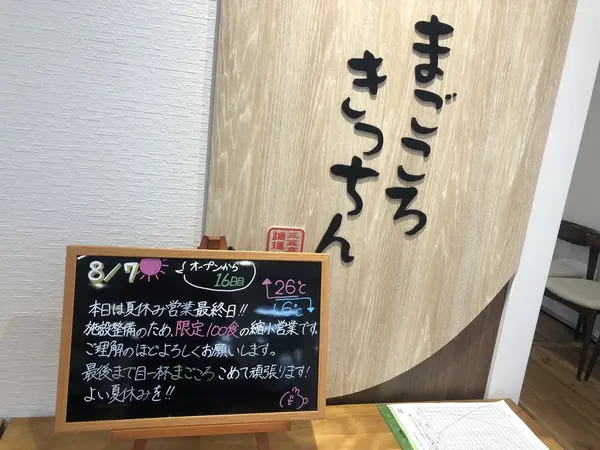 まごころ
きっちん
8/7
オープンから
16日目
↑26℃
16℃↓
本日は夏休み営業最終日!!
施設整備のため、限定100食の縮小営業です。
ご理解のほどよろしくお願いします。
最後まで目一杯まごころこめて頑張ります!
よい夏休みを!!